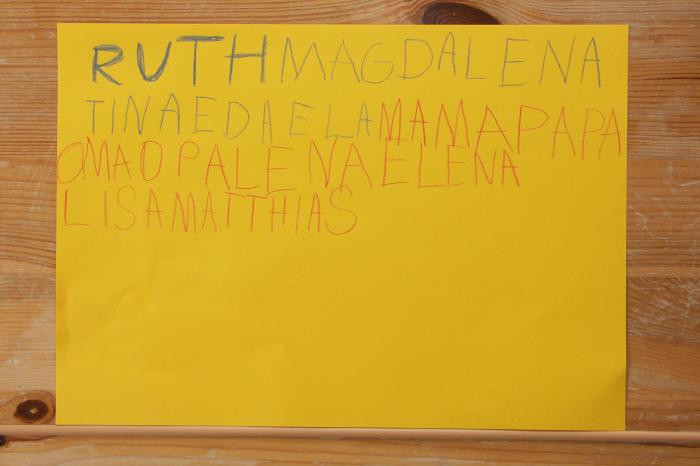 RUTHMAGDALENA
TINAEDAELAMAMAPAPA
OMAOPALENAELENA
LISAMATTHIAS